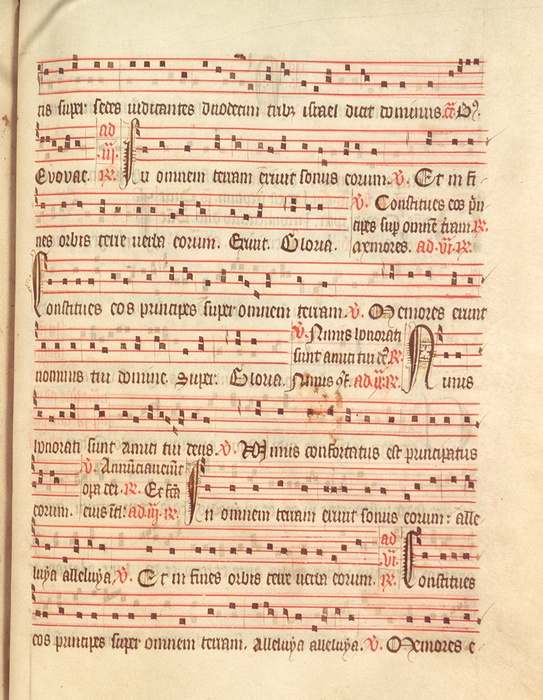 tis super sedes iudicantes duodecim trib; israel dicit dominus. D9.
Evovae. ad .iii. R. In omnem terram exiuit sonus eorum. V. Et in fi
V. Constitues eos pn
cipes sup omnē t̄ram R.
nes orbis terre uerba eorum. Exiuit. Gloria. Memores. ad .vi. R.
Constitues eos principes super omnem terram. V. Memores erunt
V. Nimis honorati
sunt amici tui d̄s R.
nominis tui domine. Super. Gloria. Nimis 9f. ad .ix. R. Nimis
honorati sunt amici tui deus. V. Nimis confortatus est principatus
V. Annunciauerūt
opa dei. R. Et fcā
eorum. eius ītel. ad .iii. R. In omnem terram exiuit sonus eorum: alle
ad
.vi.
luya alleluya. V. Et in fines orbis terre uerba eorum. R. Constitues
eos principes super omnem terram. Alleluya alleluya. V. Memores e